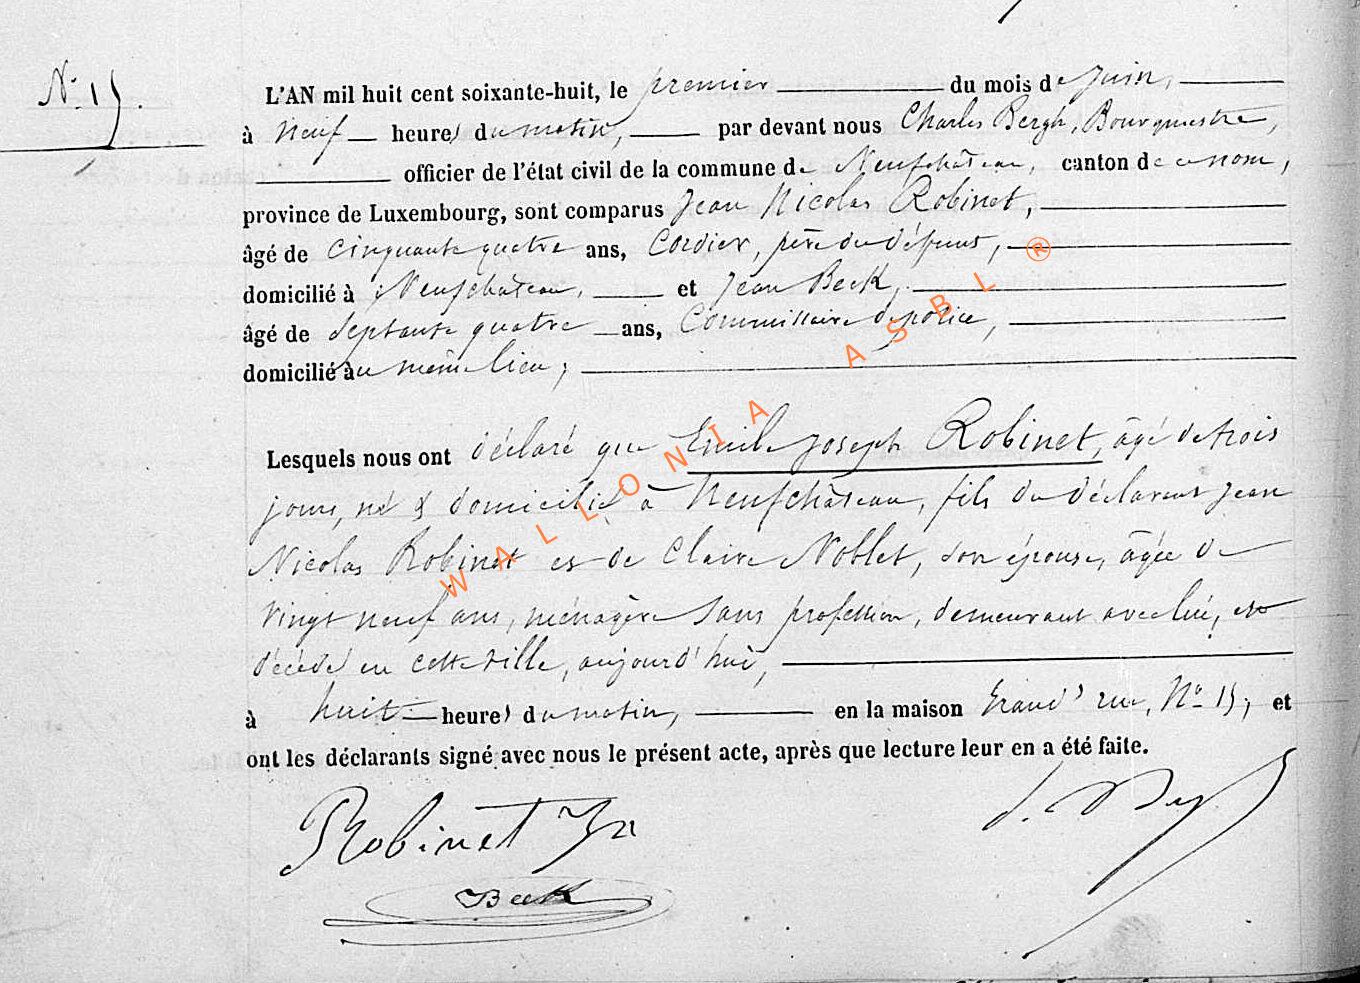 N° 15.
L'AN mil huit cent soixante-huit, le premier du mois de Juin,
à Neuf heures du matin, par devant nous Charles Bergh, Bourgmestre,
officier de l'état civil de la commune de Neufchâteau, canton de ce nom,
province de Luxembourg, sont comparus Jean Nicolas Robinet,
âgé de cinquante quatre ans, Cordier, père du défunt,
domicilié à Neufchâteau, et Jean Beck,
âgé de Septante quatre ans, Commissaire de police,
domicilié au même lieu,
Lesquels nous ont déclaré que Emile Joseph Robinet, âgé de trois
jours, né & domicilié à Neufchâteau, fils du déclarant Jean
Nicolas Robinet et de Claire Noblet, son épouse, âgée de
vingt neuf ans, ménagère sans profession, demeurant avec lui, est
décédé en cette ville, aujourd'hui,
à huit heures du matin, en la maison Grand' rue, N° 15, et
ont les déclarants signé avec nous le présent acte, après que lecture leur en a été faite.
Robinet Jn
Beck
WALLONIA ASBL ®